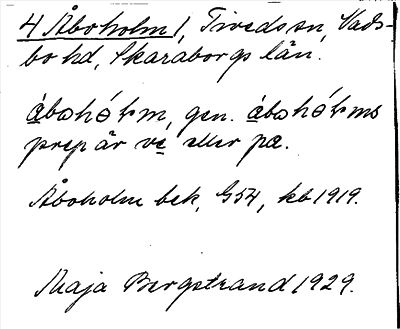 4 Åboholm 1, Tiveds sn, Vads-
bo hd, Skaraborgs län.
åbohólm, gen. åbohólms
prep är ve eller pæ.
Åboholm bek, G54, kb 1919.
Maja Bergstrand 1929.